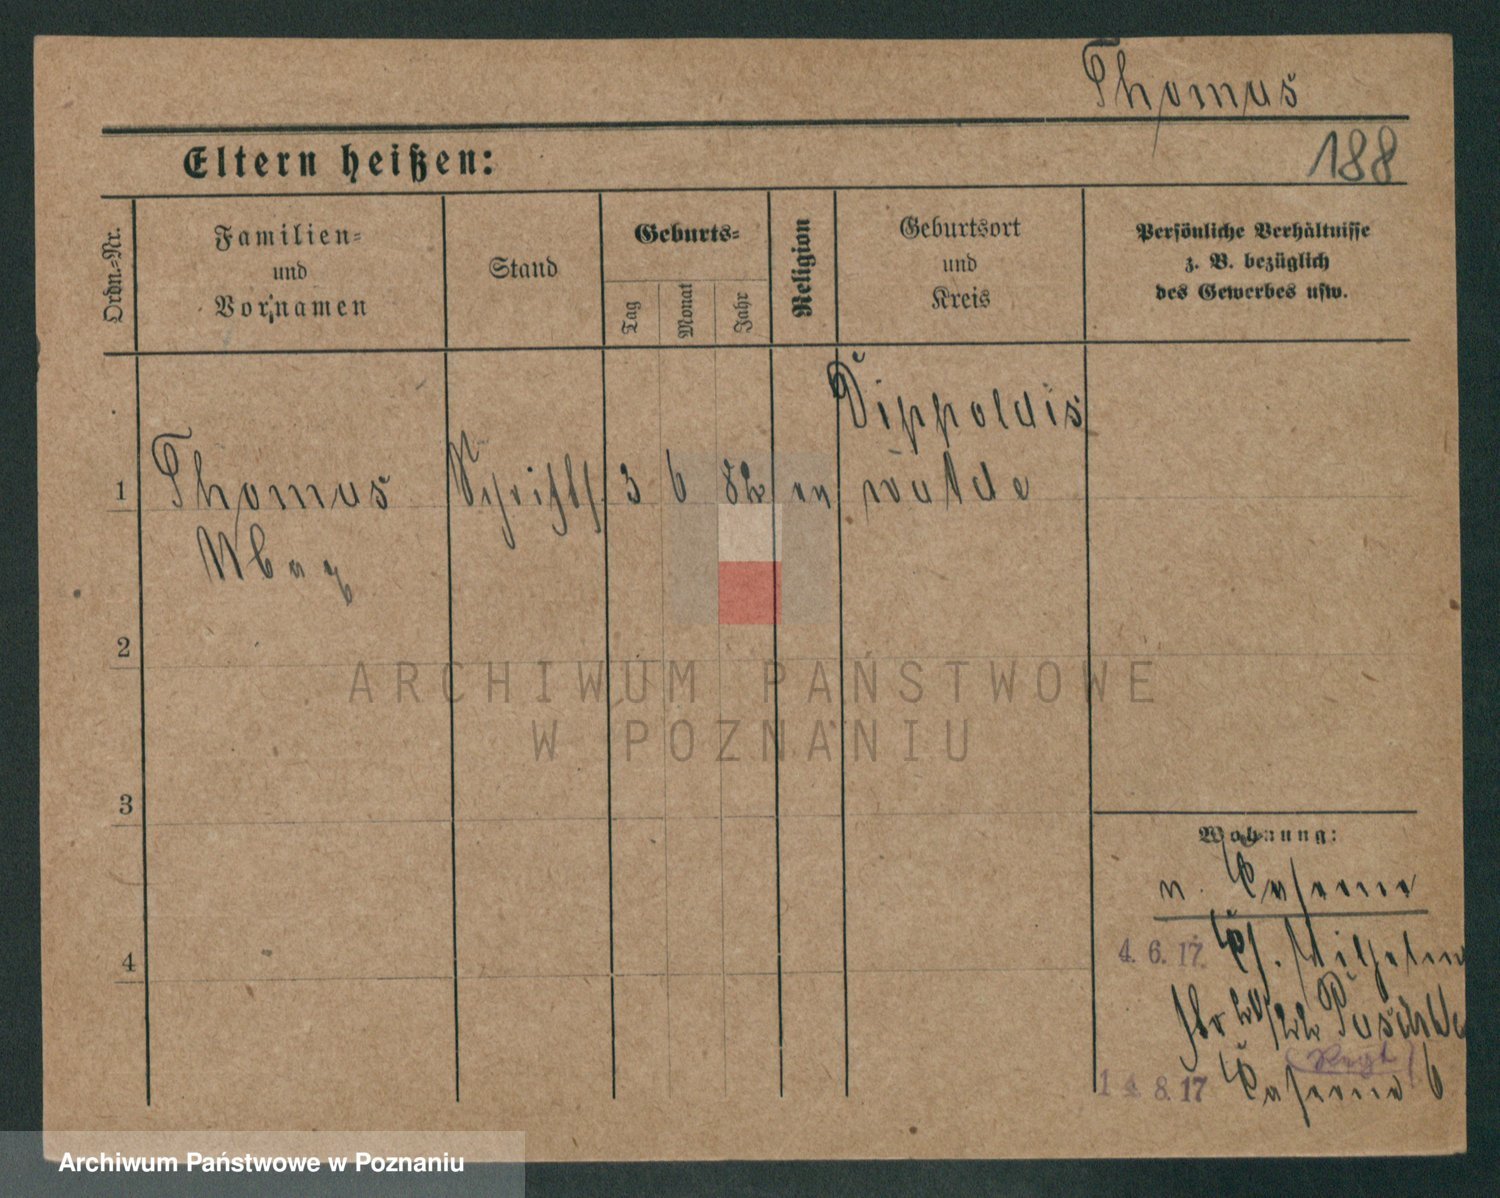 Thomas
188
Eltern heißen:
Ordn.-Nr.
Familien-
und
Vornamen
Stand
Geburts-
Tag
Monat
Jahr
Religion
Geburtsort
und
Kreis
Persönliche Verhältnisse
z. B. bezüglich
des Gewerbes usw.
Dippoldis
1 Thomas 3 6 82 ev walde
Max
2
ARCHIWUM PAŃSTWOWE
W POZNANIU
3
Wohnung:
Caserne
4
4. 6. 17. Wilhelm
str 20/22
14. 8. 17 Caserne 6
Archiwum Państwowe w Poznaniu